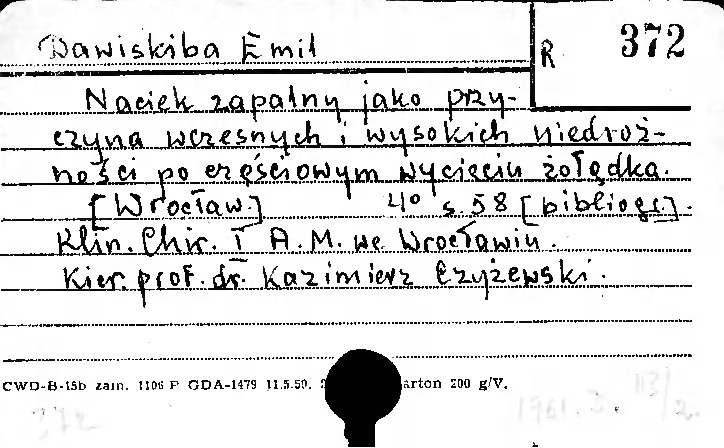 Dawiskiba Emil
R 372
Naciek zapalny jako przy-
czyna wczesnych i wysokich niedroż-
ności po częściowym wycięciu żołądka.
[Wrocław.] 4° s. 58 [bibliogr.].
Klin. Chir. I A. M. we Wrocławiu.
Kier. prof. dr. Kazimierz Czyżewski.
CWD-B-15b zam. 1106 P GDA-1479 11.5.59. arton 200 g/V.
372 1961. 113/2.